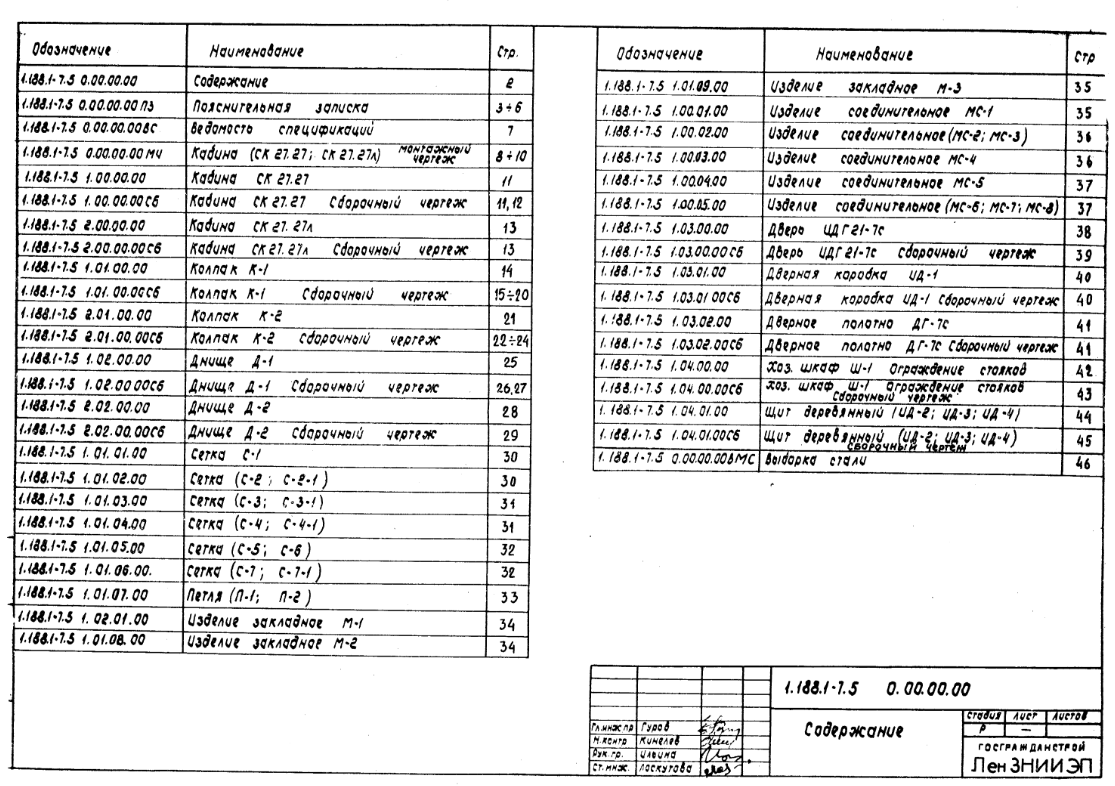 Обозначение Наименование Стр.
1.188.1-7.5 0.00.00.00 Содержание 2
1.188.1-7.5 0.00.00.00 ПЗ Пояснительная записка 3÷6
1.188.1-7.5 0.00.00.00ВС Ведомость спецификаций 7
1.188.1-7.5 0.00.00.00 МЧ Кабина (СК 27.27; СК 27.27л) монтажный чертеж 8÷10
1.188.1-7.5 1.00.00.00 Кабина СК 27.27 11
1.188.1-7.5 1.00.00.00СБ Кабина СК 27.27 Сборочный чертеж 11,12
1.188.1-7.5 2.00.00.00 Кабина СК 27.27л 13
1.188.1-7.5 2.00.00.00СБ Кабина СК 27.27л Сборочный чертеж 13
1.188.1-7.5 1.01.00.00 Колпак К-1 14
1.188.1-7.5 1.01.00.00СБ Колпак К-1 Сборочный чертеж 15÷20
1.188.1-7.5 2.01.00.00 Колпак К-2 21
1.188.1-7.5 2.01.00.00СБ Колпак К-2 Сборочный чертеж 22÷24
1.188.1-7.5 1.02.00.00 Днище Д-1 25
1.188.1-7.5 1.02.00.00СБ Днище Д-1 Сборочный чертеж 26,27
1.188.1-7.5 2.02.00.00 Днище Д-2 28
1.188.1-7.5 2.02.00.00СБ Днище Д-2 Сборочный чертеж 29
1.188.1-7.5 1.01.01.00 Сетка С-1 30
1.188.1-7.5 1.01.02.00 Сетка (С-2; С-2-1) 30
1.188.1-7.5 1.01.03.00 Сетка (С-3; С-3-1) 31
1.188.1-7.5 1.01.04.00 Сетка (С-4; С-4-1) 31
1.188.1-7.5 1.01.05.00 Сетка (С-5; С-6) 32
1.188.1-7.5 1.01.06.00. Сетка (С-7; С-7-1) 32
1.188.1-7.5 1.01.07.00 Петля (П-1; П-2) 33
1.188.1-7.5 1.02.01.00 Изделие закладное М-1 34
1.188.1-7.5 1.01.08.00 Изделие закладное М-2 34
Обозначение Наименование Стр
1.188.1-7.5 1.01.09.00 Изделие закладное М-3 35
1.188.1-7.5 1.00.01.00 Изделие соединительное МС-1 35
1.188.1-7.5 1.00.02.00 Изделие соединительное (МС-2; МС-3) 36
1.188.1-7.5 1.00.03.00 Изделие соединительное МС-4 36
1.188.1-7.5 1.00.04.00 Изделие соединительное МС-5 37
1.188.1-7.5 1.00.05.00 Изделие соединительное (МС-6; МС-7; МС-8) 37
1.188.1-7.5 1.03.00.00 Дверь ЩДГ21-7с 38
1.188.1-7.5 1.03.00.00СБ Дверь ЩДГ21-7с Сборочный чертеж 39
1.188.1-7.5 1.03.01.00 Дверная коробка ИД-1 40
1.188.1-7.5 1.03.01.00СБ Дверная коробка ИД-1 Сборочный чертеж 40
1.188.1-7.5 1.03.02.00 Дверное полотно ДГ-7с 41
1.188.1-7.5 1.03.02.00СБ Дверное полотно ДГ-7с Сборочный чертеж 41
1.188.1-7.5 1.04.00.00 Хоз. шкаф Ш-1 Ограждение стояков 42
1.188.1-7.5 1.04.00.00СБ Хоз. шкаф Ш-1 Ограждение стояков 43
Сборочный чертеж
1.188.1-7.5 1.04.01.00 Щит деревянный (ИД-2; ИД-3; ИД-4) 44
1.188.1-7.5 1.04.01.00СБ Щит деревянный (ИД-2; ИД-3; ИД-4) 45
Сборочный чертеж
1.188.1-7.5 0.00.00.00ВМС Выборка стали 46
1.188.1-7.5 0.00.00.00
Содержание
Стадия Лист Листов
Р —
ГОСГРАЖДАНСТРОЙ
ЛенЗНИИЭП
Гл.инж.пр Гуров
Н.контр Кинелев
Рук.гр. Ильина
Ст.инж. Лоскутова